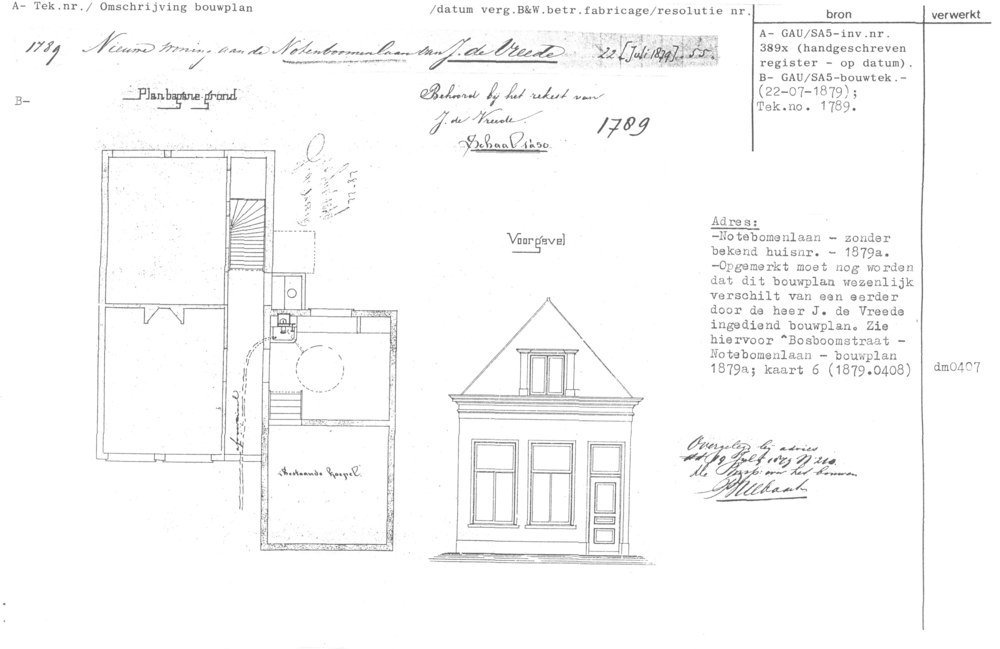 A- Tek.nr./ Omschrijving bouwplan
/datum verg.B&W.betr.fabricage/resolutie nr.
bron
verwerkt
1789 Nieuwe woning aan de Notenboomenlaan van J. de Vreede 22 [Juli 1879] 55.
A- GAU/SA5-inv.nr.
389x (handgeschreven
register - op datum).
B- GAU/SA5-bouwtek.-
(22-07-1879);
Tek.no. 1789.
B-
Plan begane-grond
Behoord bij het rekest van
J. de Vreede.
1789
Schaal 1 à 50
Voorgevel
Adres:
-Notebomenlaan - zonder
bekend huisnr. - 1879a.
-Opgemerkt moet nog worden
dat dit bouwplan wezenlijk
verschilt van een eerder
door de heer J. de Vreede
ingediend bouwplan. Zie
hiervoor ^Bosboomstraat -
Notebomenlaan - bouwplan
1879a; kaart 6 (1879.0408)
dm0407
Bestaande Koepel
Overgelegd bij advies
dd. 19 Juli 1879 N 220
de Insp: over het bouwen